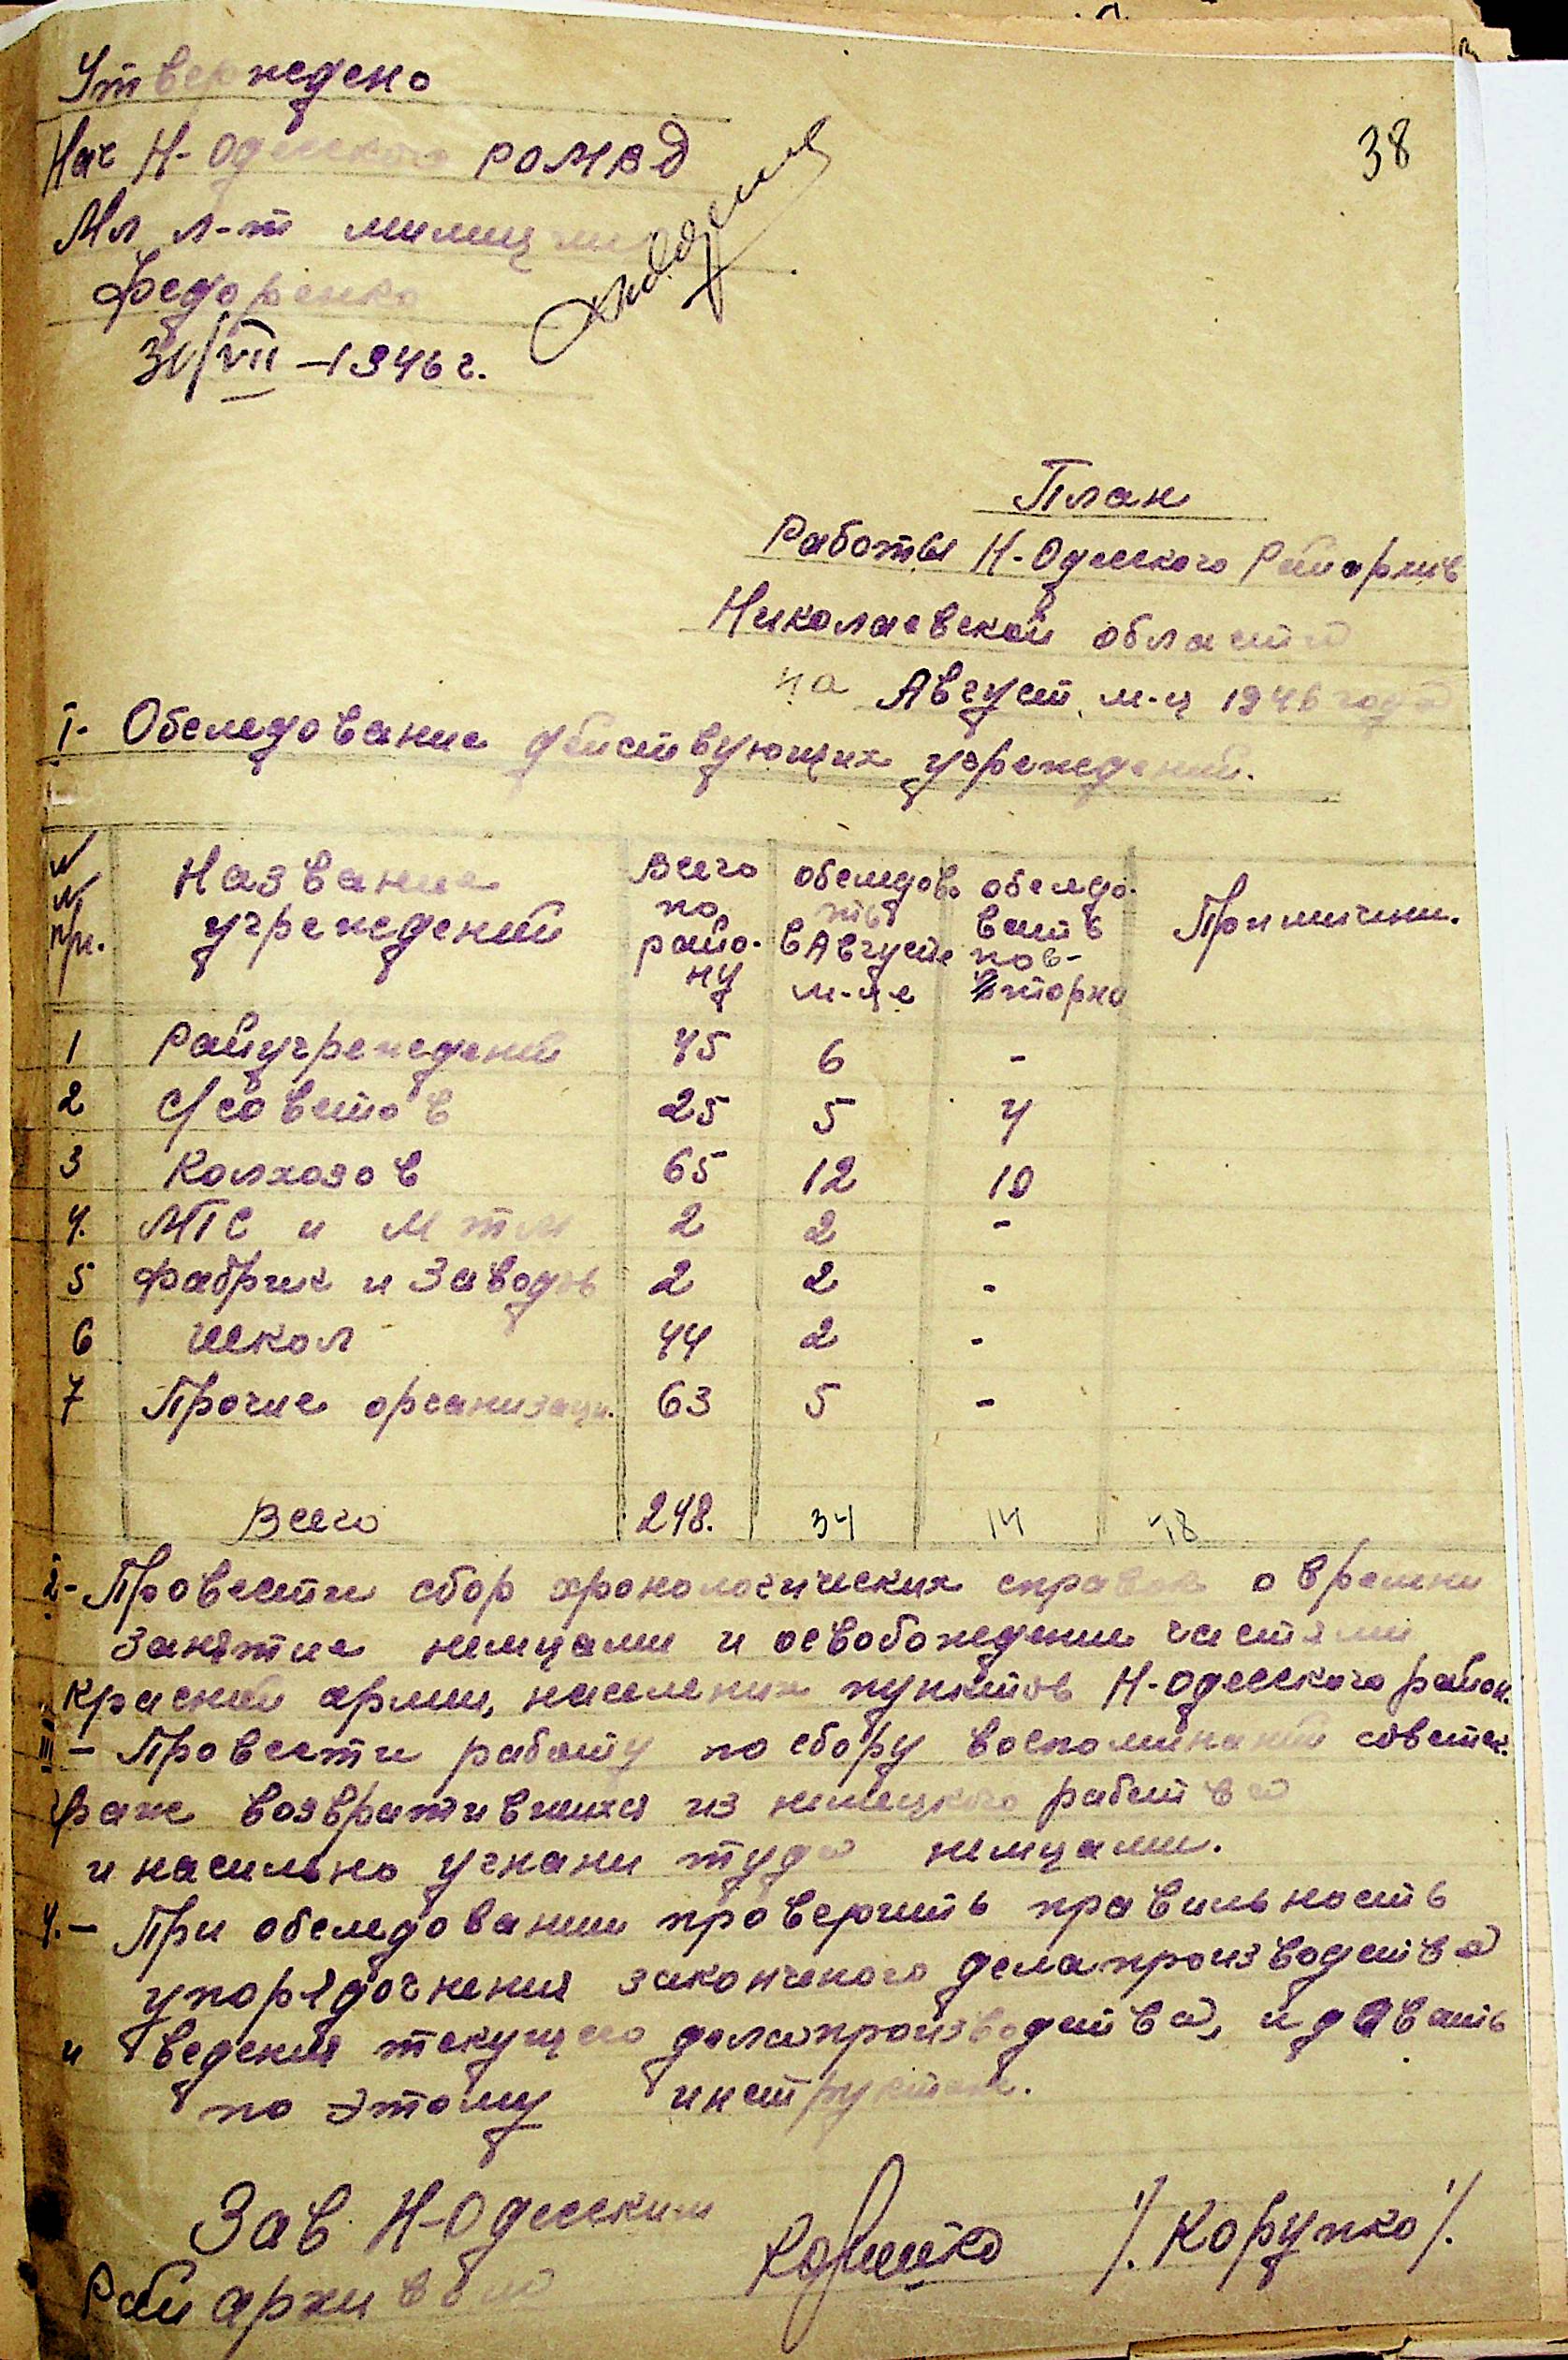 Утверждено
38
Нач Н-Одесского РОМВД
Мл л-т милиции
Федоренко
31/VII-1946 г.
План
Работы Н-Одесского Райархив
Николаевской области
на Август м-ц 1946 года
I- Обследование действующих учреждений.
№№ п/п. Название учреждений Всего по райо-ну обследовать в Августе м-це обследо-вать пов-вторно Примечани.
1 Райучреждений 45 6 -
2 с/советов 25 5 4
3 Колхозов 65 12 10
4. МТС и МТМ 2 2 -
5 фабрик и Заводов 2 2 -
6 школ 44 2 -
7 Прочие организаци. 63 5 -
Всего 248. 34 14 48
2- Провести сбор хронологических справок о времени
занятие немцами и освобождение частями
красной армии, населених пунктов Н-одесского район.
III - Провести работу по сбору воспоминаний советск.
граж возвратившихся из немецкого рабства
и насильно угнани туда немцами.
4.- При обследовании проверить правильность
упорядочнения законченого делапроизводства
и ведения текущего делапроизводства, и давать
по этому инструктаж.
Зав Н-Одесским
Райархивом /.Корупко/.